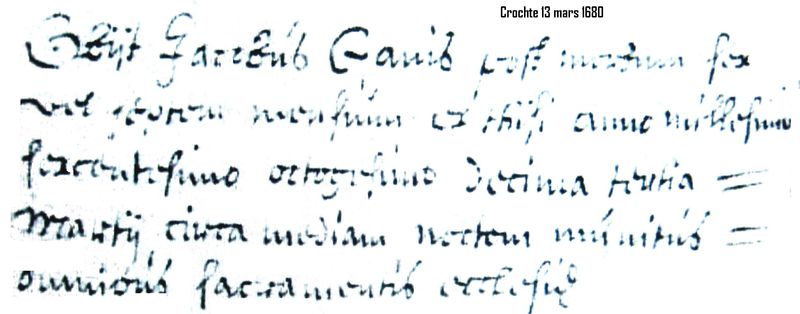 Crochte 13 mars 1680
Obijt Jacobus Canis post morbum sex
vel septem mensium ex thisi anno millesimo
sexcentesimo octogesimo decima tertia =
Martij circa mediam noctem munitus =
omnibus sacramentis ecclesię